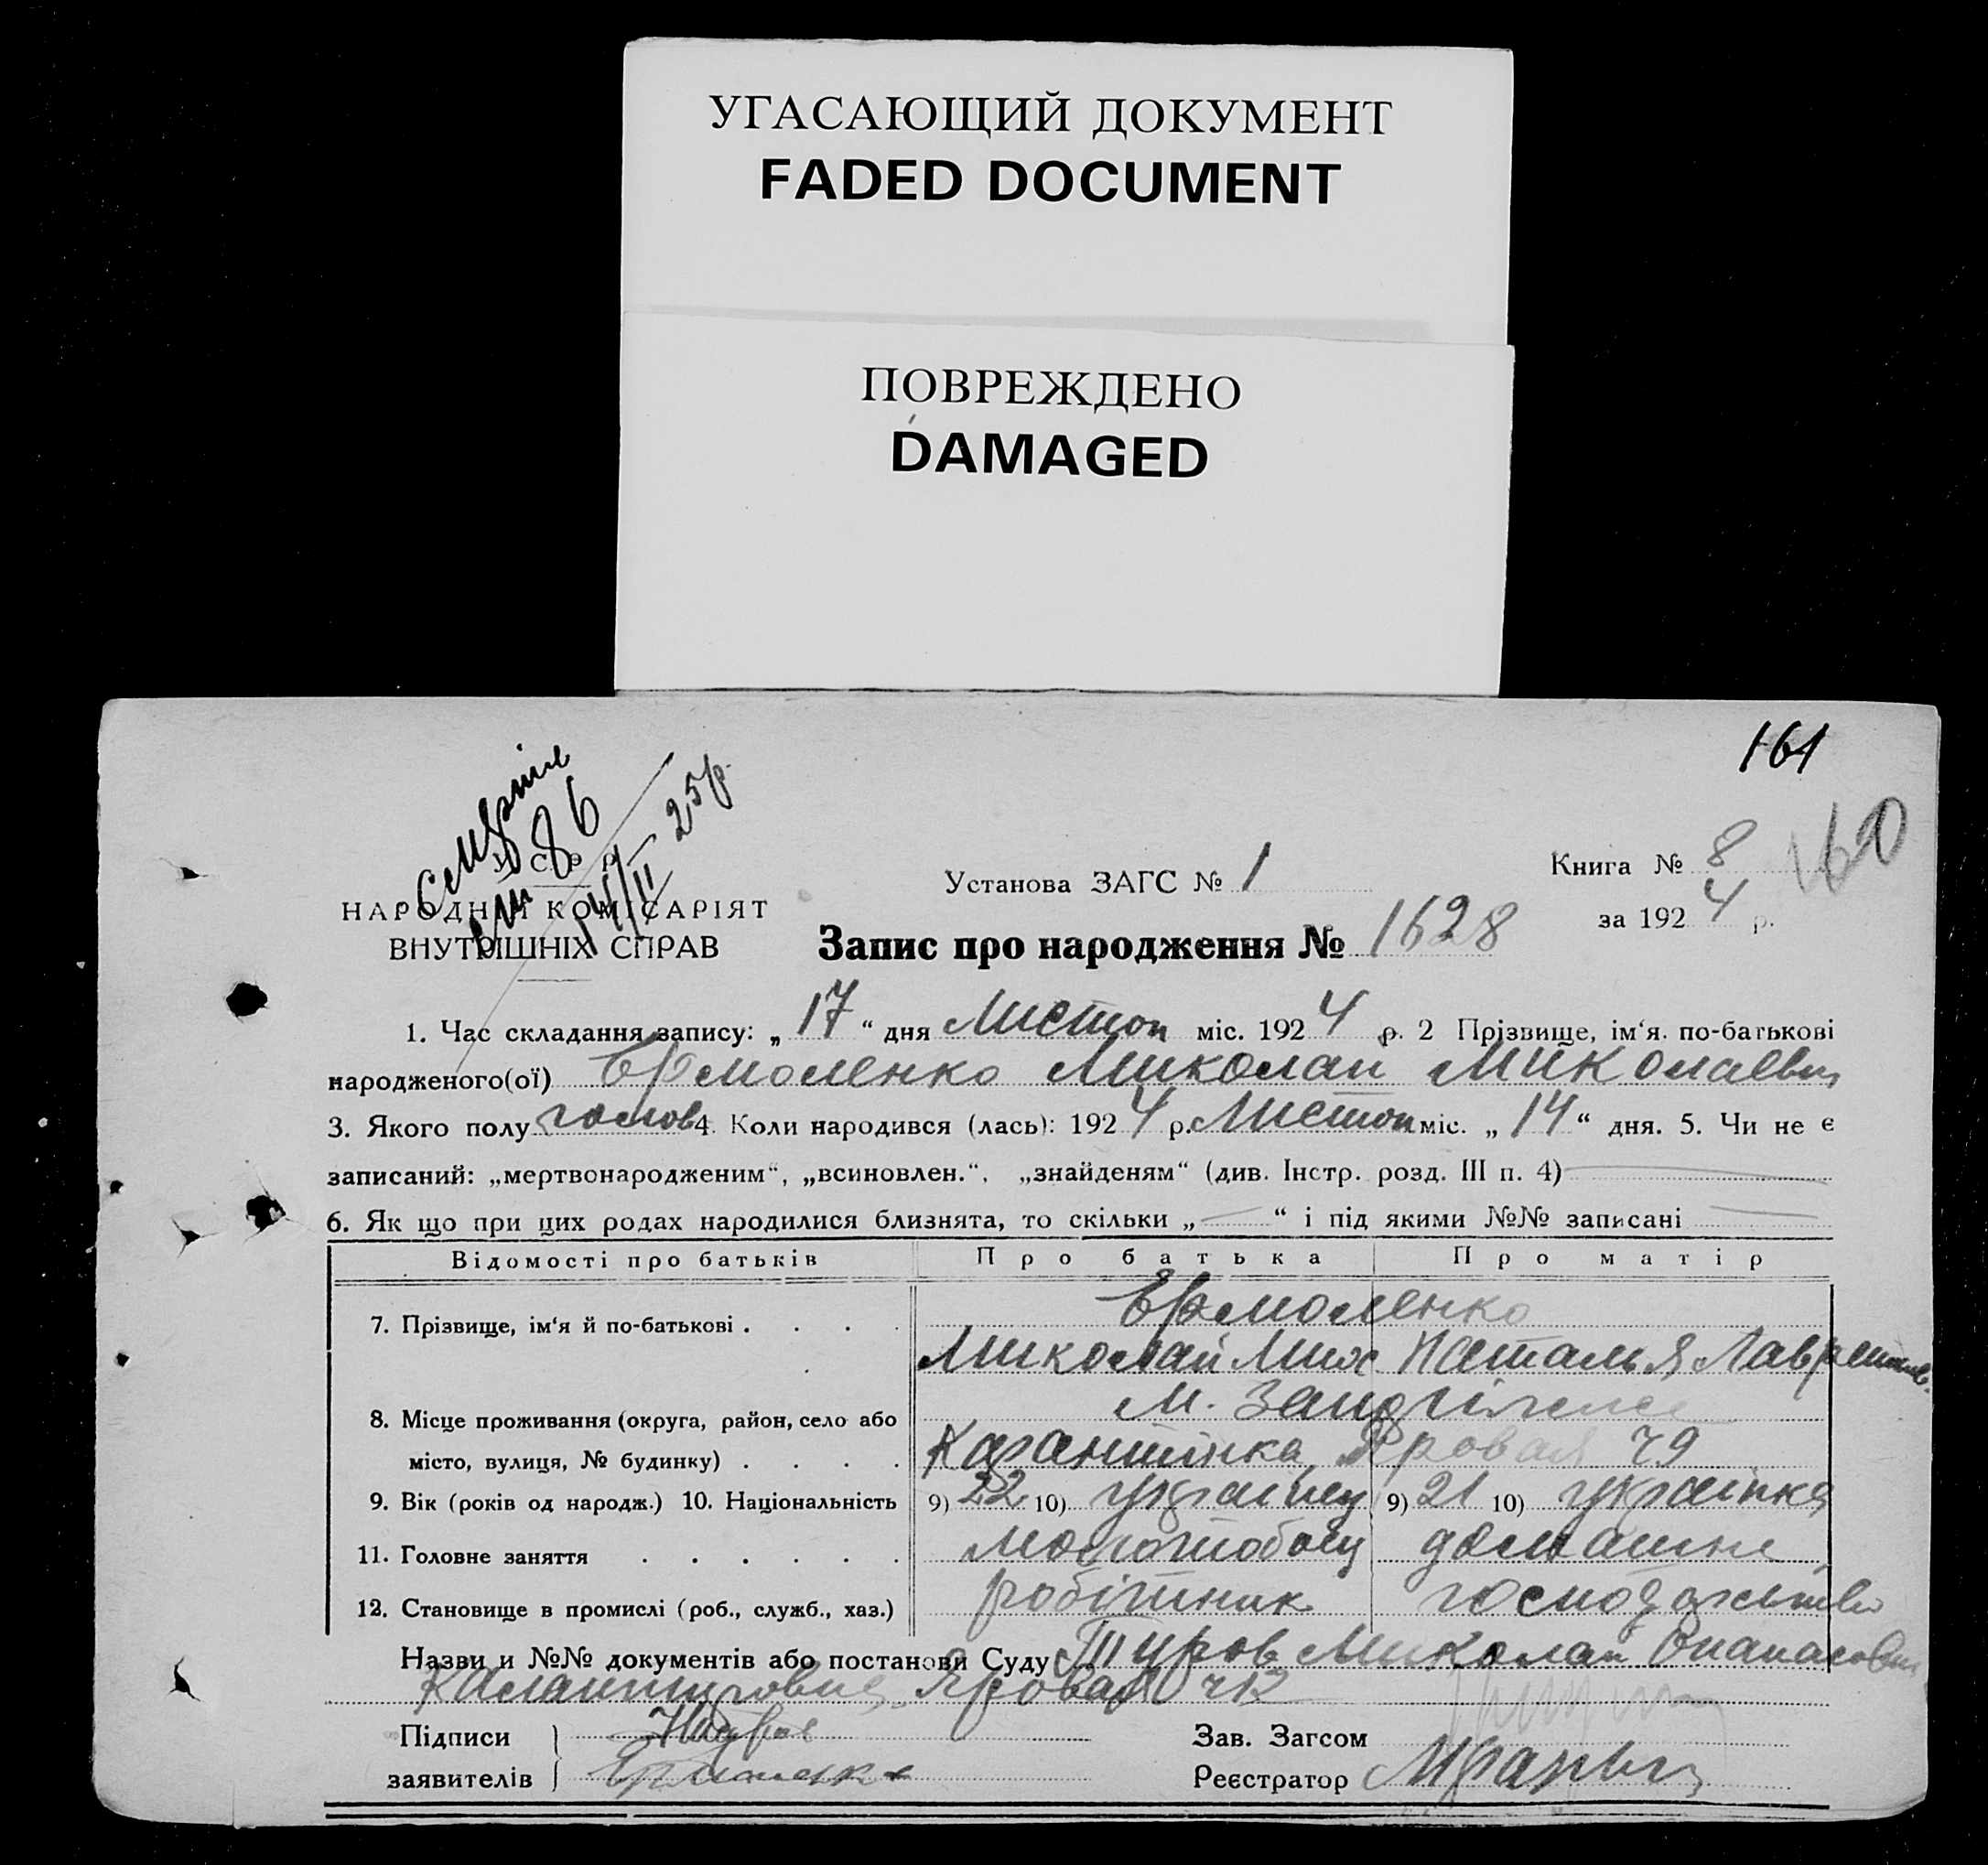 УГАСАЮЩИЙ ДОКУМЕНТ
FADED DOCUMENT
ПОВРЕЖДЕНО
DAMAGED
161
160
86
25 р.
У. С. Р. Р.
НАРОДНІЙ КОМІСАРІЯТ
ВНУТРІШНІХ СПРАВ
Установа ЗАГС № 1
Книга № 8
за 1924 р.
Запис про народження № 1628
1. Час складання запису: „17“ дня Листоп міс. 1924 р. 2 Прізвище, ім‘я. по-батькові
народженого(ої) Єрмоленко Миколай Миколаевич
3. Якого полу 4. Коли народився (лась): 1924 р. Листоп міс. „14“ дня. 5. Чи не є
записаний: „мертвонародженим“, „всиновлен.“, „знайденям“ (див. Інстр. розд. III п. 4)
6. Як що при цих родах народилися близнята, то скільки „—“ і під якими №№ записані —
Відомості про батьків Про батька Про матір
7. Прізвище, ім‘я й по-батькові . . . . Єрмоленко
Миколай Мих Наталья Лаврентив.
8. Місце проживання (округа, район, село або м.
місто, вулиця, № будинку) . . . . Яровая 79
9. Вік (років од народж.) 10. Національність 9) 22 10) українец 9) 21 10) українка
11. Головне заняття . . . . . . молотобоец домашне
12. Становище в промислі (роб., служб., хаз.) робітник господарство
Назви и №№ документів або постанови Суду Миколай
Яровая
Підписи
заявителів
Зав. Загсом
Реєстратор